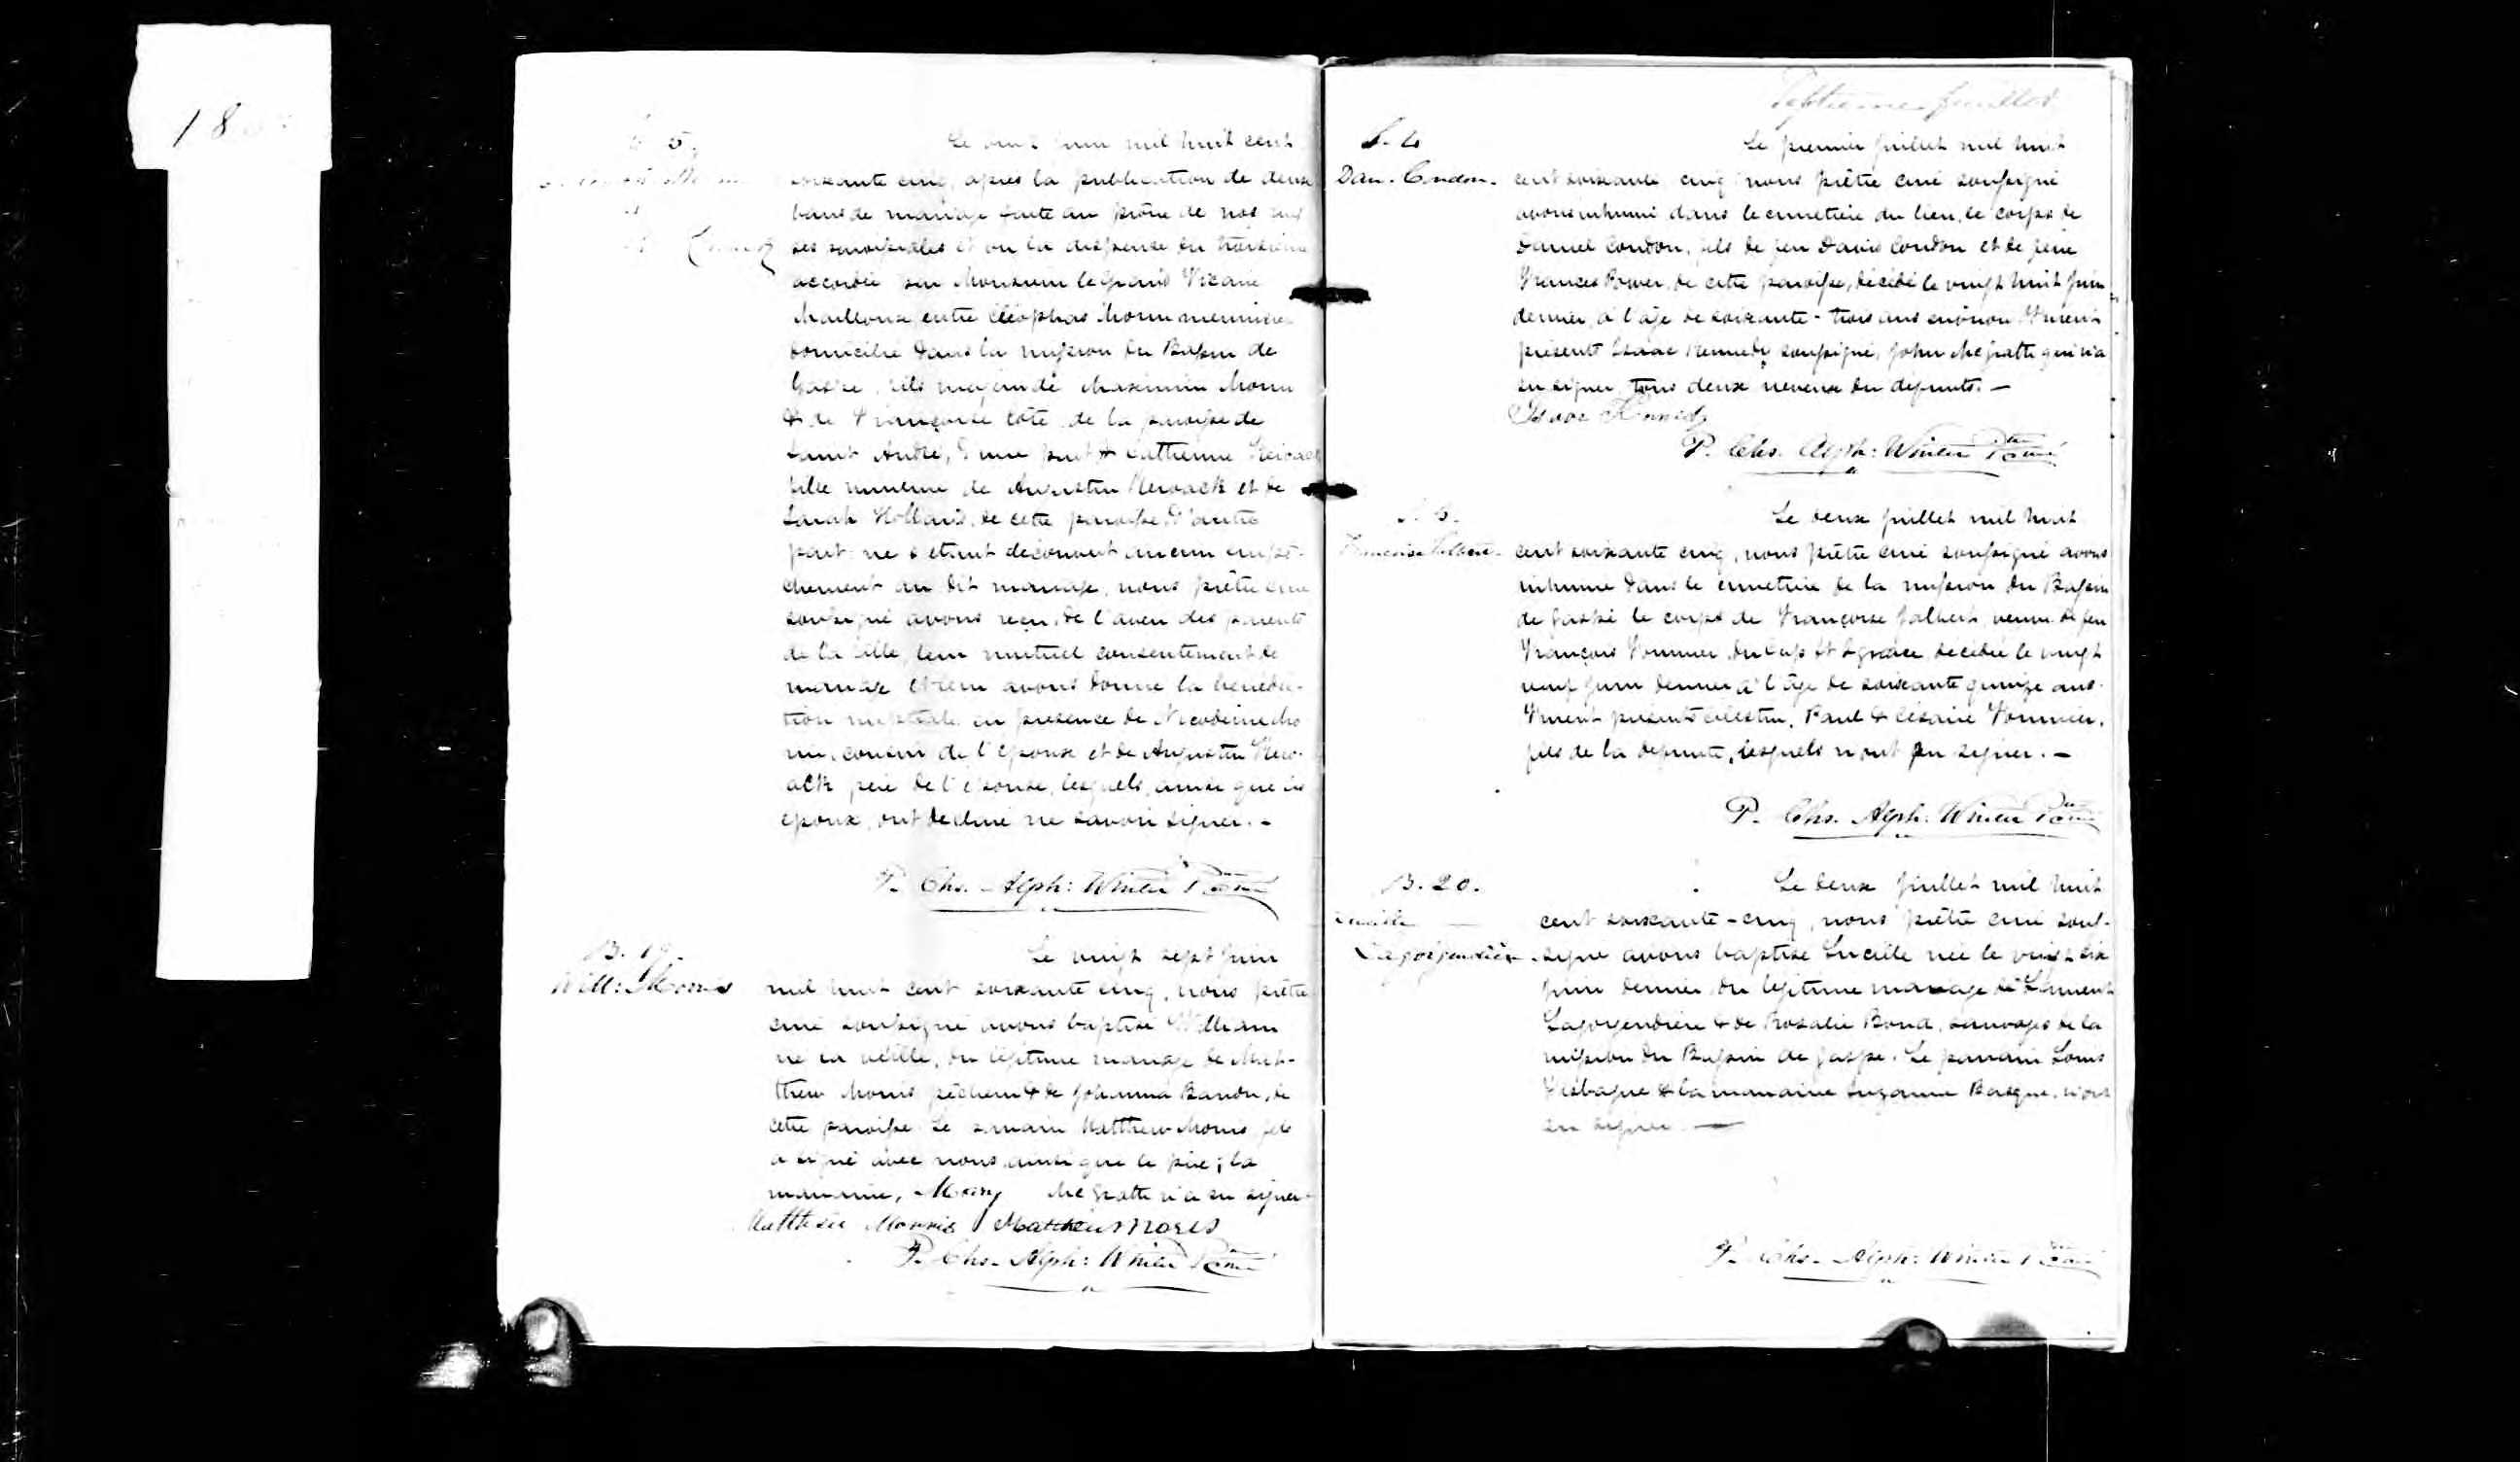 18
5.
Le onze juin mil huit cent
soixante cinq, après la publication de deux
bans de mariage faite au prône de nos mes
ses paroissiales et vu la dispense du troisième
accordée par Monsieur le Grand Vicaire
Mailloux, entre Cléophas Morin menuisier
domicilié dans la mission du Bassin de
Gaspé, fils majeur de Maximin Morin
& de Françoise Côté de la paroisse de
Saint André, d'une part & Catherine
fille mineure de Augustin Keroack et de
Sarah Holland, de cette paroisse, d'autre
part; ne s'étant découvert aucun empê-
chement au dit mariage, nous prêtre curé
soussigné avons reçu, de l'aveu des parents
de la fille, leur mutuel consentement de
mariage et leur avons donné la bénédic-
tion nuptiale en présence de Nicodème Mo
rin, cousin de l'époux et de Augustin Kero-
ack père de l'épouse, lesquels, ainsi que les
époux, ont déclaré ne savoir signer. -
P. Chs. Alph: Winter Ptre curé
B. 19.
Will: Morris
Le vingt sept juin
mil huit cent soixante cinq, nous prêtre
curé soussigné avons baptisé William
né la veille, du légitime mariage de Mat-
thew Morris pêcheur & de Johanna Baudu, de
cette paroisse. Le parrain Matthew Morris fils
a signé avec nous ainsi que le père; la
marraine, Mary McGrath n'a su signer
Matthew Morris Matthew Mores
P. Chs. Alph: Winter Ptre curé
Septième feuillet
S. 4
Dan. Condon.
Le premier juillet mil huit
cent soixante cinq nous prêtre curé soussigné
avons inhumé dans le cimetière du lieu, le corps de
Daniel Condon, fils de feu David Condon et de feue
Frances Power, de cette paroisse, décédé le vingt huit juin
dernier, à l'âge de soixante-trois ans environ. Furent
présents Isaac Kennedy soussigné, John McGrath qui n'a
su signer, tous deux neveux du défunts. -
Isaac Kennedy
P. Chs. Alph: Winter Ptre curé
S. 5.
Françoise Jalbert.
Le deux juillet mil huit
cent soixante cinq, nous prêtre curé soussigné avons
inhumé dans le cimetière de la mission du Bassin
de Gaspé le corps de Françoise Jalbert, veuve de feu
François Fournier du Cap St Ignace, décédée le vingt
neuf juin dernier à l'âge de soixante quinze ans.
Furent présents Célestin, Paul & Césaire Fournier,
fils de la défunte, lesquels n'ont pu signer. -
P. Chs. Alph: Winter Ptre curé
B. 20.
Lucille
Lagorgendière.
Le deux juillet mil huit
cent soixante-cinq, nous prêtre curé sous-
signé avons baptisé Lucille née le vingt six
juin dernier, du légitime mariage de Laurent
Lagorgendière & de Rosalie Bond, sauvages de la
mission du Bassin de Gaspé. Le parrain Louis
& la marraine Suzanne Basque, n'ont
su signer. -
P. Chs. Alph: Winter Ptre curé